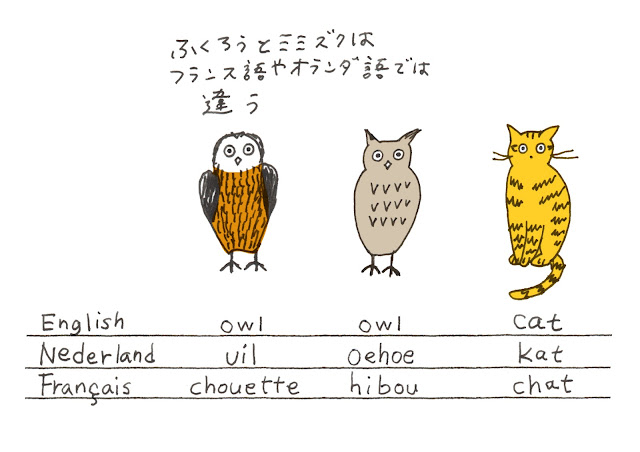 ふくろうとミミズクは
フランス語やオランダ語では
違う
English owl owl cat
Nederland uil oehoe kat
Français chouette hibou chat